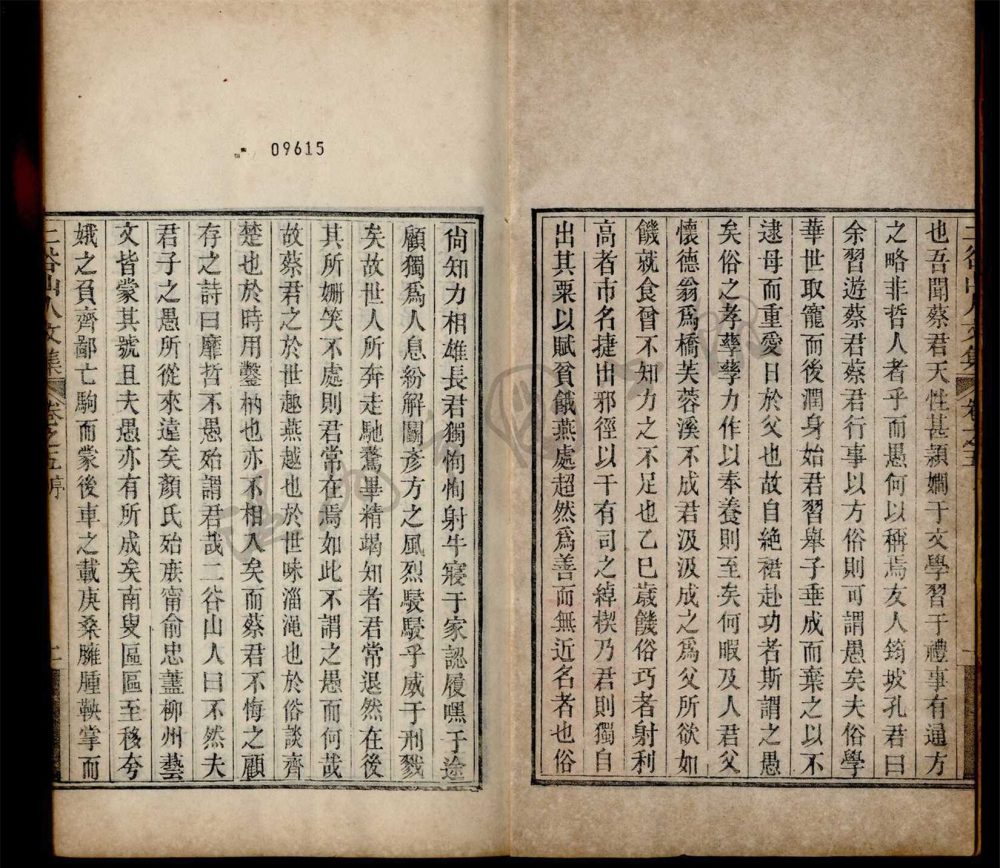 也吾聞蔡君天性甚頴嫺于文學習于禮事有通方
之略非哲人者乎而愚何以稱焉友人筠坡孔君曰
余習遊蔡君蔡君行事以方俗則可謂愚矣夫俗學
華世取寵而後潤身始君習舉子垂成而棄之以不
逮母而重愛日於父也故自絶裙赴功者斯謂之愚
矣俗之孝孳孳力作以奉養則至矣何暇及人君父
懷德翁爲橋芙蓉溪不成君汲汲成之爲父所欲如
饑就食曾不知力之不足也乙巳歳饑俗巧者射利
高者市名捷出邪徑以干有司之綽楔乃君則獨自
出其粟以賦貧餓燕處超然爲善而無近名者也俗
尙知力相雄長君獨恂恂射牛寢于家認履嘿于途
顧獨爲人息紛解鬬彦方之風烈駸駸乎威于刑戮
矣故世人所奔走馳騖畢精竭知者君常退然在後
其所姍笑不處則君常在焉如此不謂之愚而何哉
故蔡君之於世趣燕越也於世味淄澠也於俗談齊
楚也於時用鑿枘也亦不相入矣而蔡君不悔之顧
存之詩曰靡哲不愚殆謂君哉二谷山人曰不然夫
君子之愚所從來遠矣顏氏殆庶甯俞忠藎柳州藝
文皆蒙其號且夫愚亦有所成矣南叟區區至移夸
娥之負齊鄙亡駒而蒙後車之載庚桑臃腫鞅掌而
二谷山人文集
卷之五序
二谷山人文集
卷之五
09615